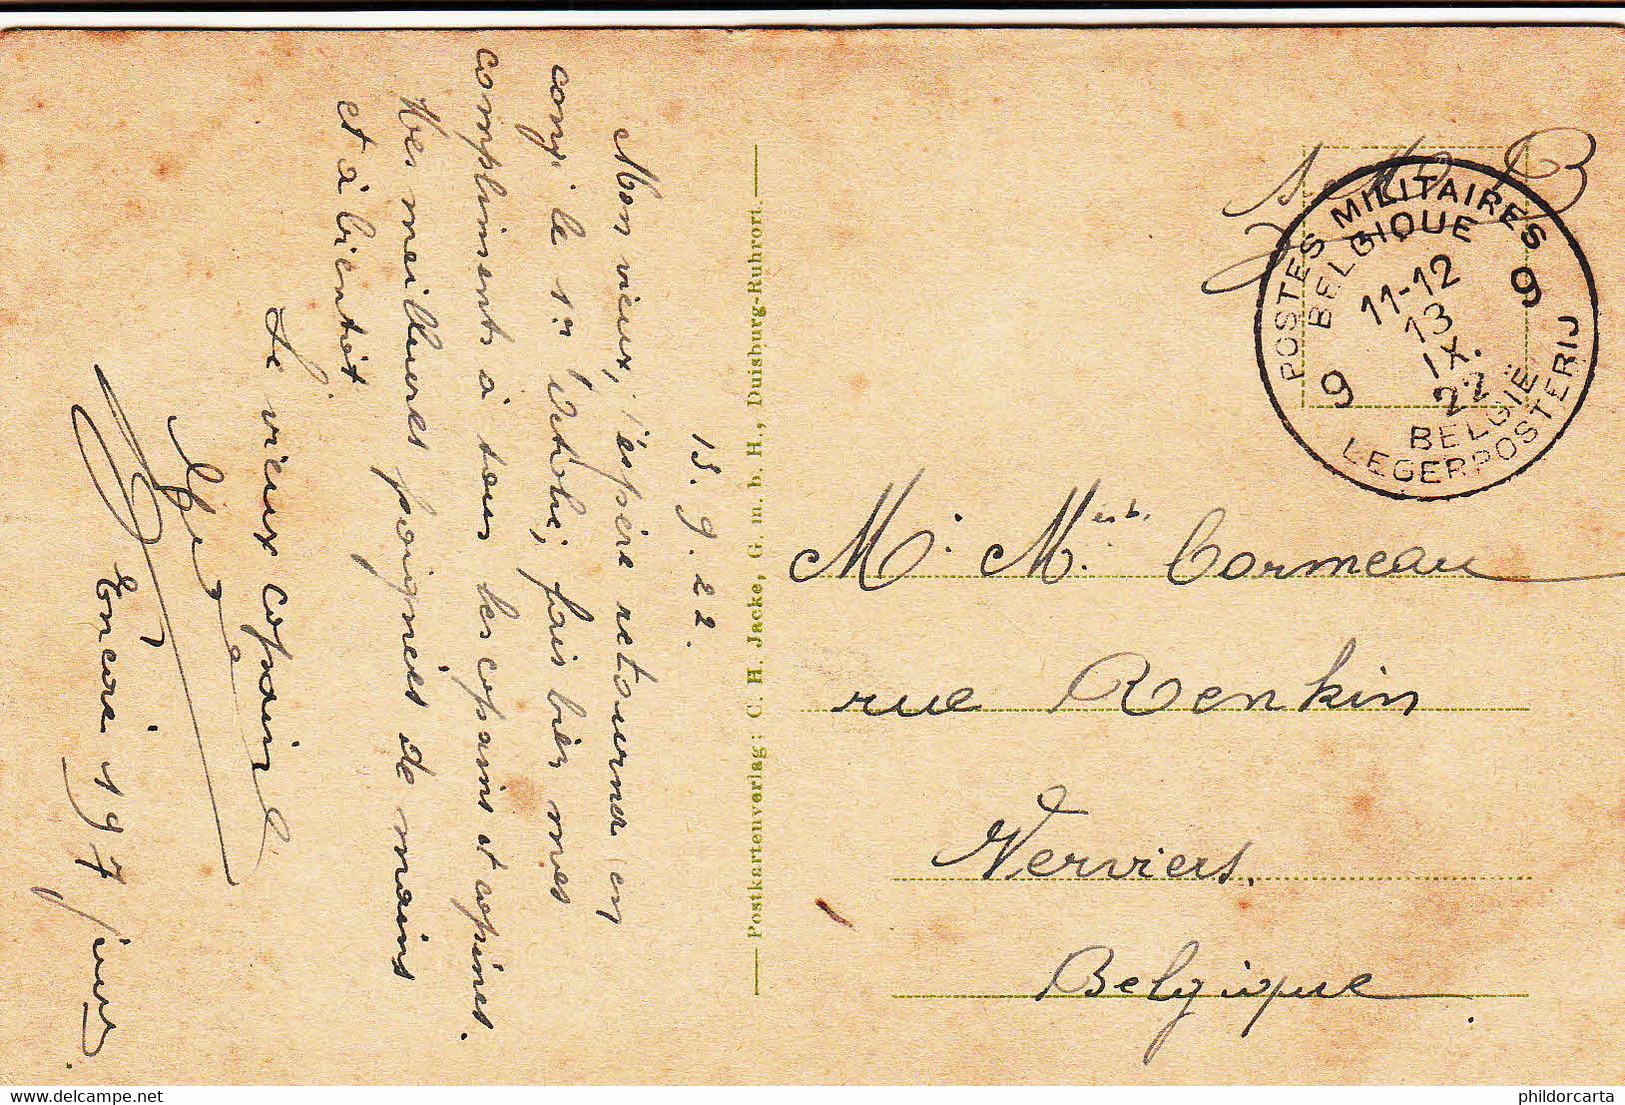 15.9.22.
Mon vieux, j'éspère retourner en
congé le 1er Octobre, fais bien mes
compliments à tous les copains et copines.
Mes meilleures poignées de mains
et à bientôt.
Le vieux copain
Encore 197 jours
Postkartenverlag: C. H. Jacke, G. m. b. H., Duisburg-Ruhrort.
S. M. B
POSTES MILITAIRES
BELGIQUE
11-12
13
IX.
22
9 9
BELGIË
LEGERPOSTERIJ
M. M. Cormeau
rue Renkin
Verviers.
Belgique.
delcampe.net
phildorcarta